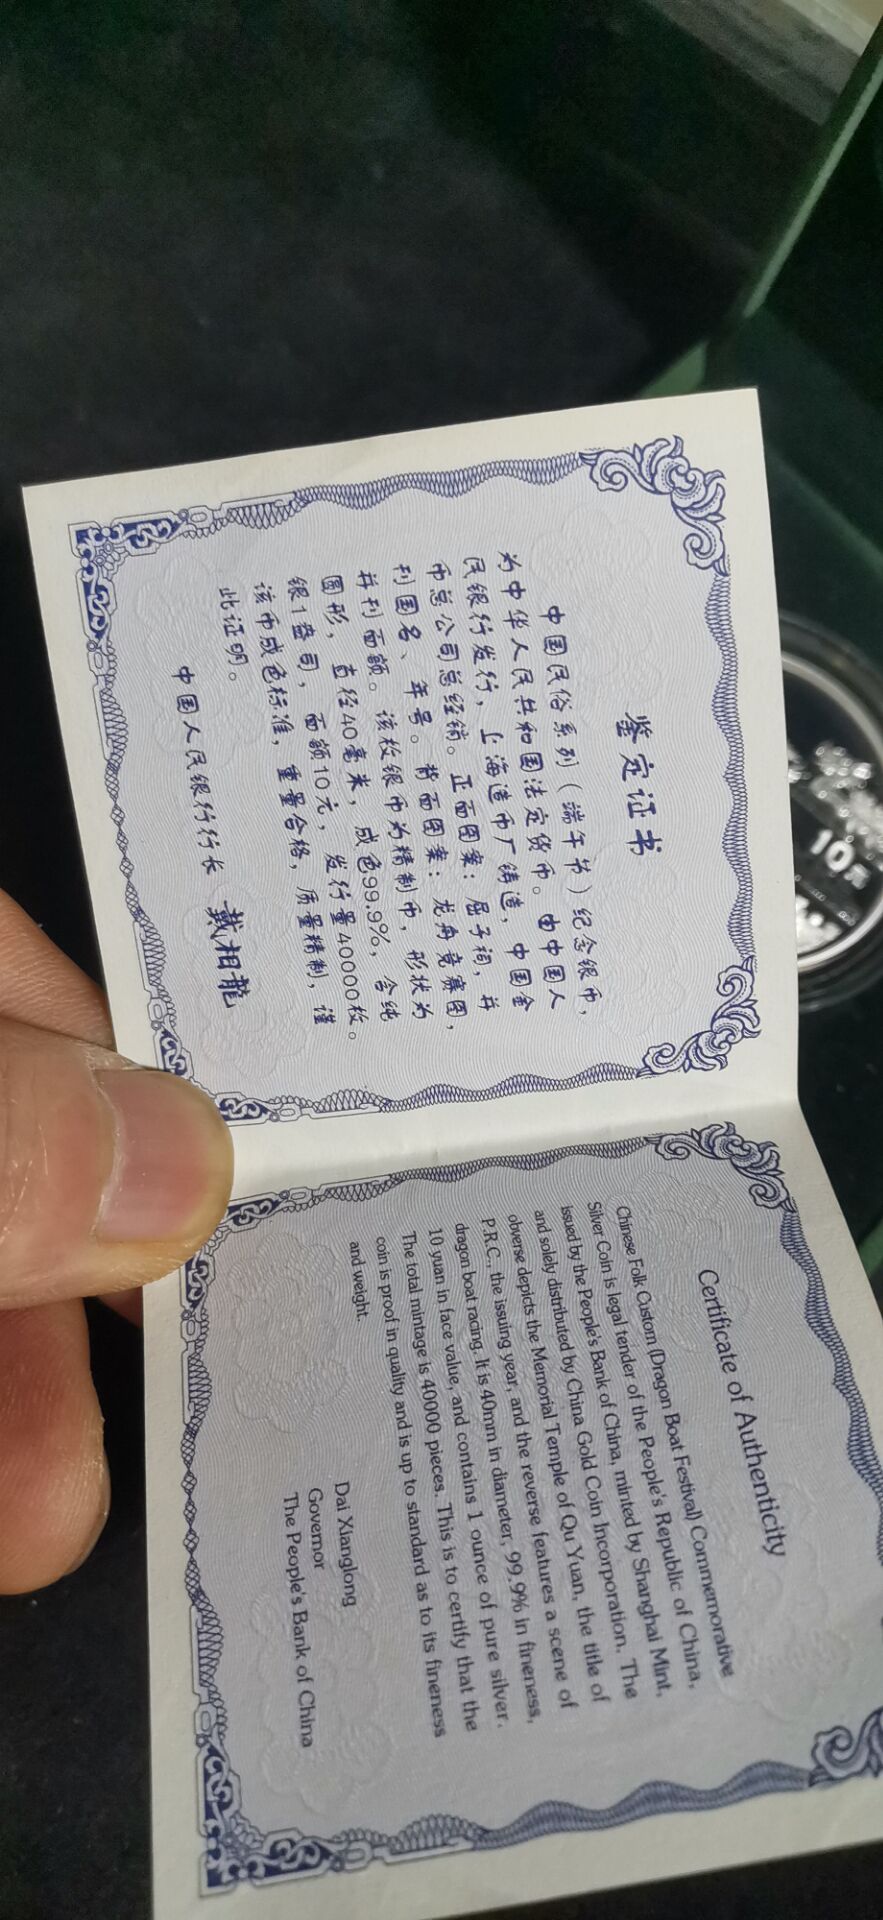 鉴定证书
中国民俗系列（端午节）纪念银币，
为中华人民共和国法定货币。由中国人
民银行发行，上海造币厂铸造，中国金
币总公司总经销。正面图案：屈子祠，并
刊国名、年号。背面图案：龙舟竞赛图，
并刊面额。该枚银币为精制币，形状为
圆形，直径40毫米，成色99.9%，含纯
银1盎司，面额10元，发行量40000枚。
该币成色标准，重量合格，质量精制，谨
此证明。
中国人民银行行长 戴相龍
Certificate of Authenticity
Chinese Folk Custom (Dragon Boat Festival) Commemorative
Silver Coin is legal tender of the People's Republic of China,
issued by the People's Bank of China, minted by Shanghai Mint,
and solely distributed by China Gold Coin Incorporation. The
obverse depicts the Memorial Temple of Qu Yuan, the title of
P.R.C., the issuing year, and the reverse features a scene of
dragon boat racing. It is 40mm in diameter, 99.9% in fineness,
10 yuan in face value, and contains 1 ounce of pure silver.
The total mintage is 40000 pieces. This is to certify that the
coin is proof in quality and is up to standard as to its fineness
and weight.
Dai Xianglong
Governor
The People's Bank of China
10元